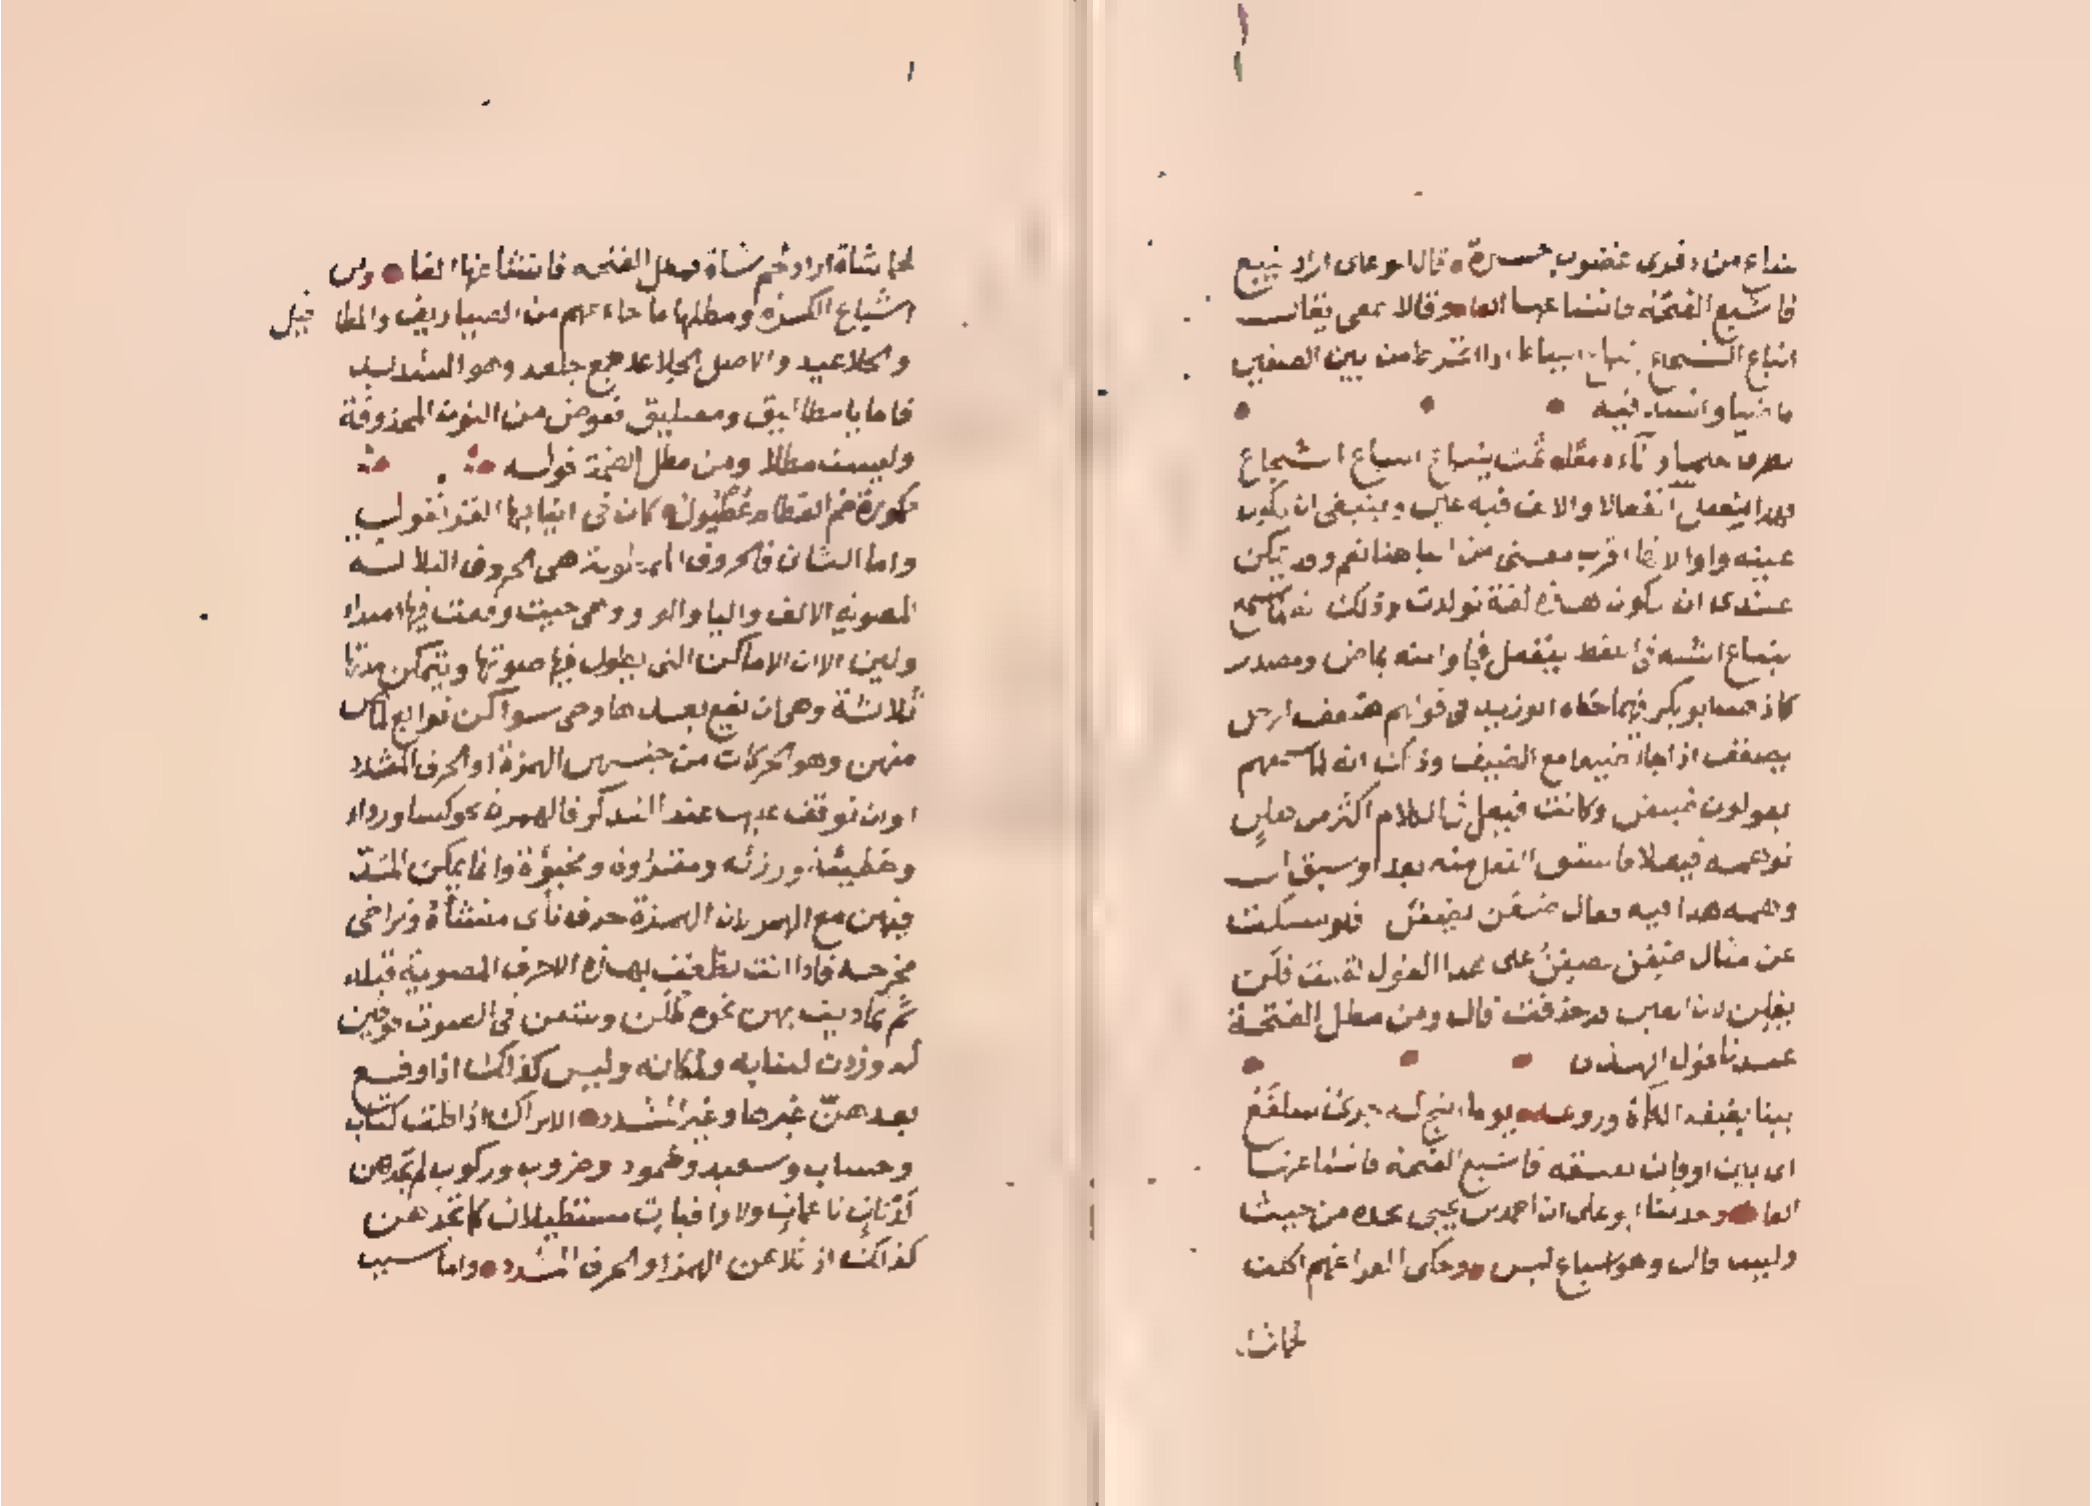 ينباع من ذفرى غضوب جسرة قال ابو على اراد ينبع
فاشبع الفتحة فانشا عنها الفا وقالا معى يقال
انباع الشجاع ينباع انبياعا اذا انخرط من بين الصفين
ماضيا وانشد فيه
يطرق حلما واناة معا ثمت ينباع انبياع الشجاع
فهذا انفعل ينفعل انفعالا والالف فيه عين وينبغى ان يكون
عينه واوا لانها اقرب معنى من الياء هنا نعم وقد يمكن
عندى ان يكون هذه لغة تولدت وذلك انه لما سمع
ينباع اشبه فى اللفظ ينفعل فجاوا منه بماض ومصدر
كما ذهب ابو بكر فيما حكاه ابو زيد فى قولهم ضفن الرجل
يضفن اذا جا ضيفا مع الضيف وذلك انه لما سمعهم
يقولون ضيفن وكانت فيعل فى الكلام اكثر من فعلن
توهمه فيعلا فاشتق الفعل منه بعد ان سبق الى
وهمه هذا فيه فقال ضفن يضفن فلو سئلت
عن مثال ضفن يضفن على هذا القول لقلت فلن
يفلن لان العين قد حذفت قال ومن مطل الفتحة
عندنا قول الهذلى
بينا تعنقه الكماة وروغه يوما اتيح له جرئ سلفع
اى بين اوقات تعنقه فاشبع الفتحة فانشا عنها
الفا وحدثنا ابو على ان احمد بن يحيى حكى خذه من حيث
وليسا قال وهو اشباع ليس وحكى الفرا عنهم اكلت
لحما شاة
لحما شاة اراد لحم شاة فمطل الفتحة فانشا عنها الفا ومن
اشباع الكسرة ومطلها ما جاء عنهم من الصياريف والمطافيل
والجلاعيد والاصل الجلاعد جمع جلعد وهو الشديد
فاما يا مطاليق ومطيليق فعوض من النون المحذوفة
وليست مطلا ومن مطل الضمة قوله
ممكورة جم العظام عطبول كان فى انيابها القرنفول
واما الثانى فالحروف الممطولة هى الحروف الثلاثة
المصوتة الالف واليا والواو وهى حيث وقعت فيها امتداد
ولين الا ان الاماكن التى يطول فيها صوتها ويتمكن مدتها
ثلاثة وهى ان تقع بعدها وهى سواكن توابع لما هى
منهن وهو الحركات من جنسهن الهمزة او الحرف المشدد
او ان توقف عليها عند التذكر فالهمزة نحو كساء ورداء
وخطيئة ورزئه ومقروءة ومخبوءة وانما يمكن المد
فيهن مع الهمز لان الهمزة حرف نأى منشأه وتراخى
مخرجه فاذا انت نطقت بهذه الاحرف المصوتة قبله
ثم تماديت بهن نحوه طلن وشعن فى الصوت فوفين
له وزدن لبيانه ولمكانه وليس كذلك اذا وقع
بعدهن غيرها وغير المشدد الا تراك اذا قلت كتاب
وحساب وسعيد وعمود وضروب وركوب لم تجدهن
لدنات ناعمات ولا وافيات مستطيلات كما تجدهن
كذلك اذا تلاهن الهمز او الحرف المشدد واما سبب